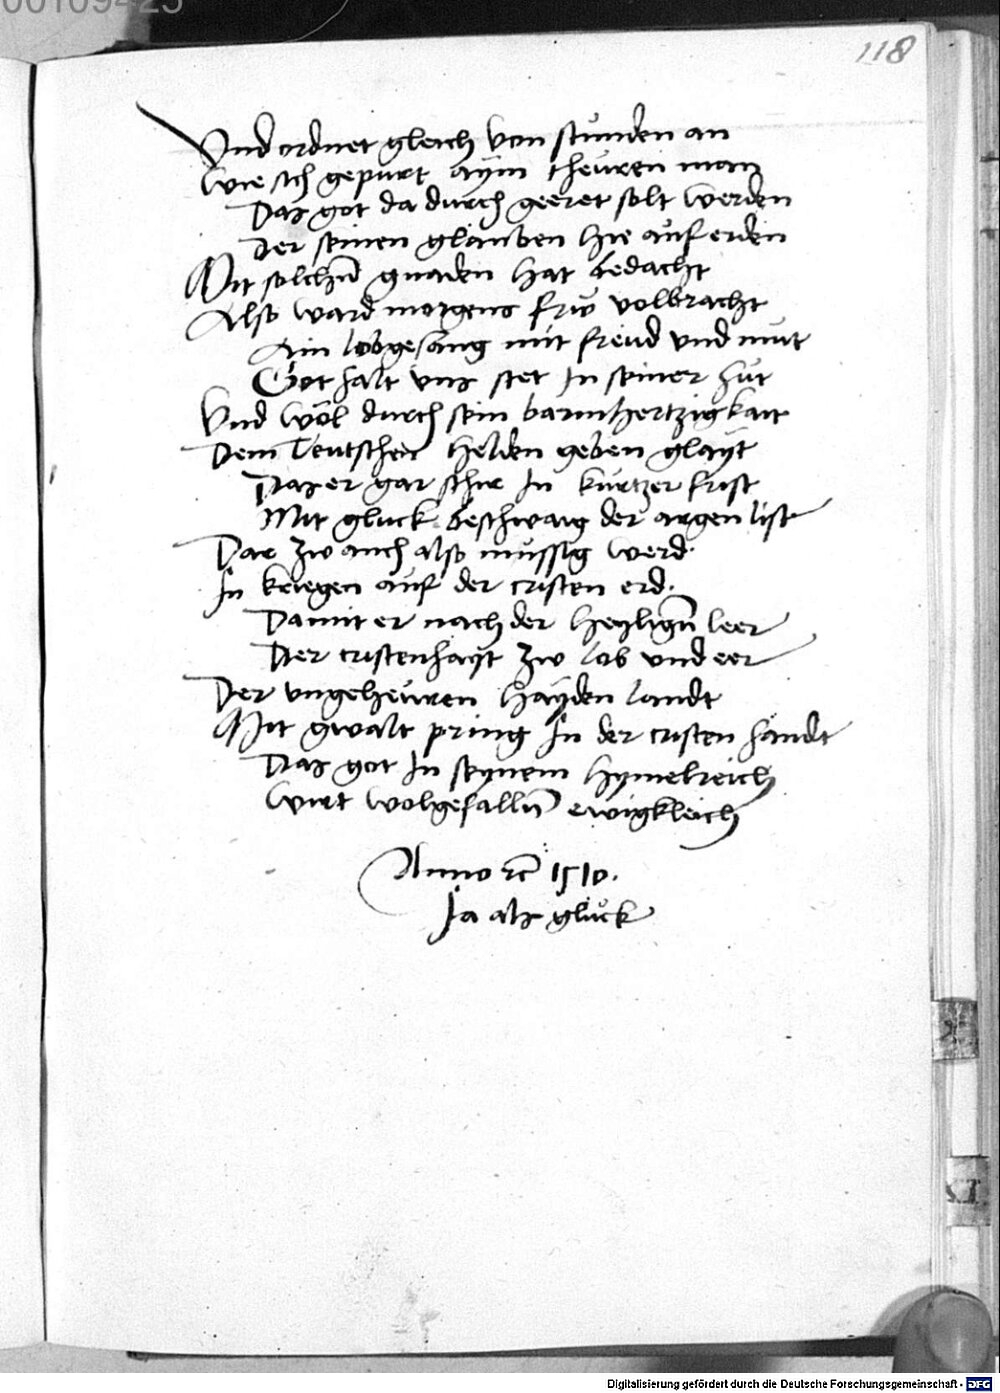 00109425
118
Vnd ordnet gleich von stunden an
Wie sich gepurt aym theuren man
Das got da durch geeret solt werden
Der seinen glauben hie auf erden
Mit solchen̄ gnaden hat bedacht
Also ward morgens frw volbracht
Ain lobgesang mit freud vnd mut
Got halt vns stet In seiner hut
Vnd wöl durch sein barmhertzigkait
Dem Teutschen helden geben glayt
Das er gar schir In kurtzer frist
Mit gluck geschwaig der argen list
Dar zw auch also mussig werd.
In kriegen auf der cristen erd.
Damit er nach der heylign̄ leer
Der cristenhayt zw lob vnd eer
Der vngeheuren hayden landt
Mit gwalt pring In der cristen handt
Das got In seynem hymelreich
Wirt wolgefalln̄ ewigkleich
Anno rc̄ 1510.
Ja als gluck
Digitalisierung gefördert durch die Deutsche Forschungsgemeinschaft - DFG